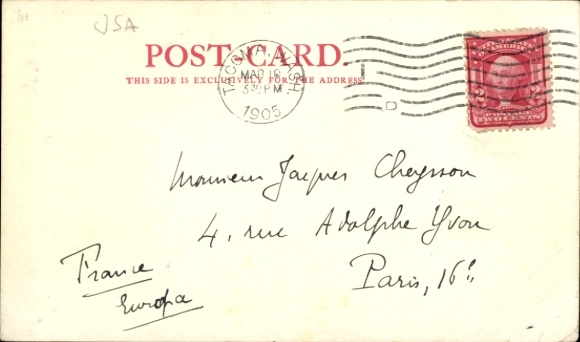 USA
POST CARD.
THIS SIDE IS EXCLUSIVELY FOR THE ADDRESS
TACOMA, WASH.
MAR 18
330PM
1905
D
TWO CENTS
Monsieur Jacques Cheysson
4, rue Adolphe Yvon
Paris, 16e
France
Europa